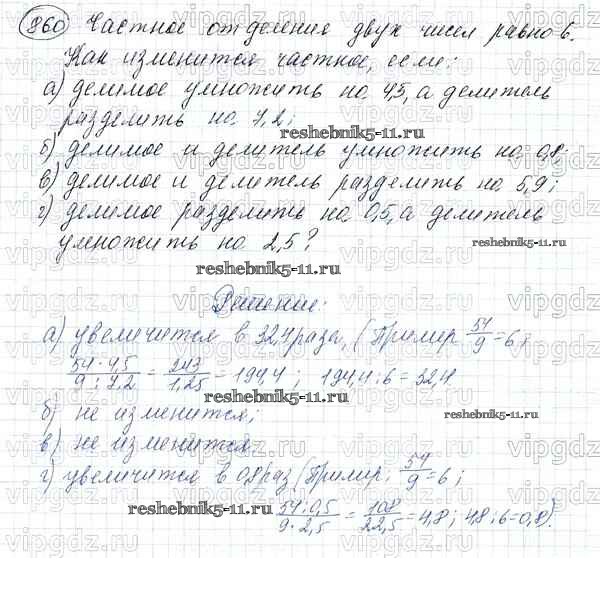 860 Частное отделения двух чисел равно 6.
Как изменится частное, если:
а) делимое умножить на 4,5, а делитель
разделить на 7,2;
reshebnik5-11.ru
б) делимое и делитель умножить на 0,8;
в) делимое и делитель разделить на 5,9;
г) делимое разделить на 0,5, а делитель
умножить на 2,5?
reshebnik5-11.ru
reshebnik5-11.ru
Решение:
а) увеличится в 32,4 раза, (Пример 54/9 = 6;
54·4,5 / 9:7,2 = 243/1,25 = 194,4; 194,4:6 = 32,4.
reshebnik5-11.ru
б) не изменится;
reshebnik5-11.ru
в) не изменится
г) увеличится в 0,8 раз (Пример: 54/9 = 6;
reshebnik5-11.ru
54:0,5 / 9·2,5 = 108/22,5 = 4,8; 4,8:6=0,8).
vipgdz.com